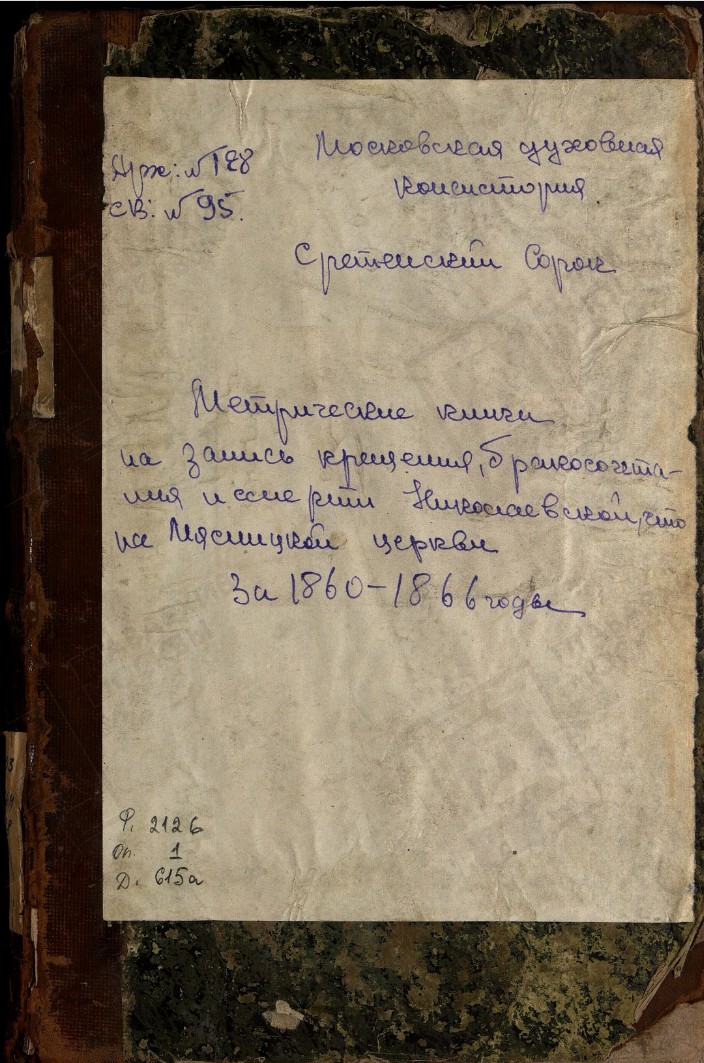 Арх: №128
св: №95.
Московская духовная
консистория
Сретенский Сорок
Метрические книги
на запись крещения, бракосочета-
ния и смерти Николаевской, что
на Мясницкой церкви
За 1860-1866 годы
Ф. 2126
Оп. 1
Д. 615а